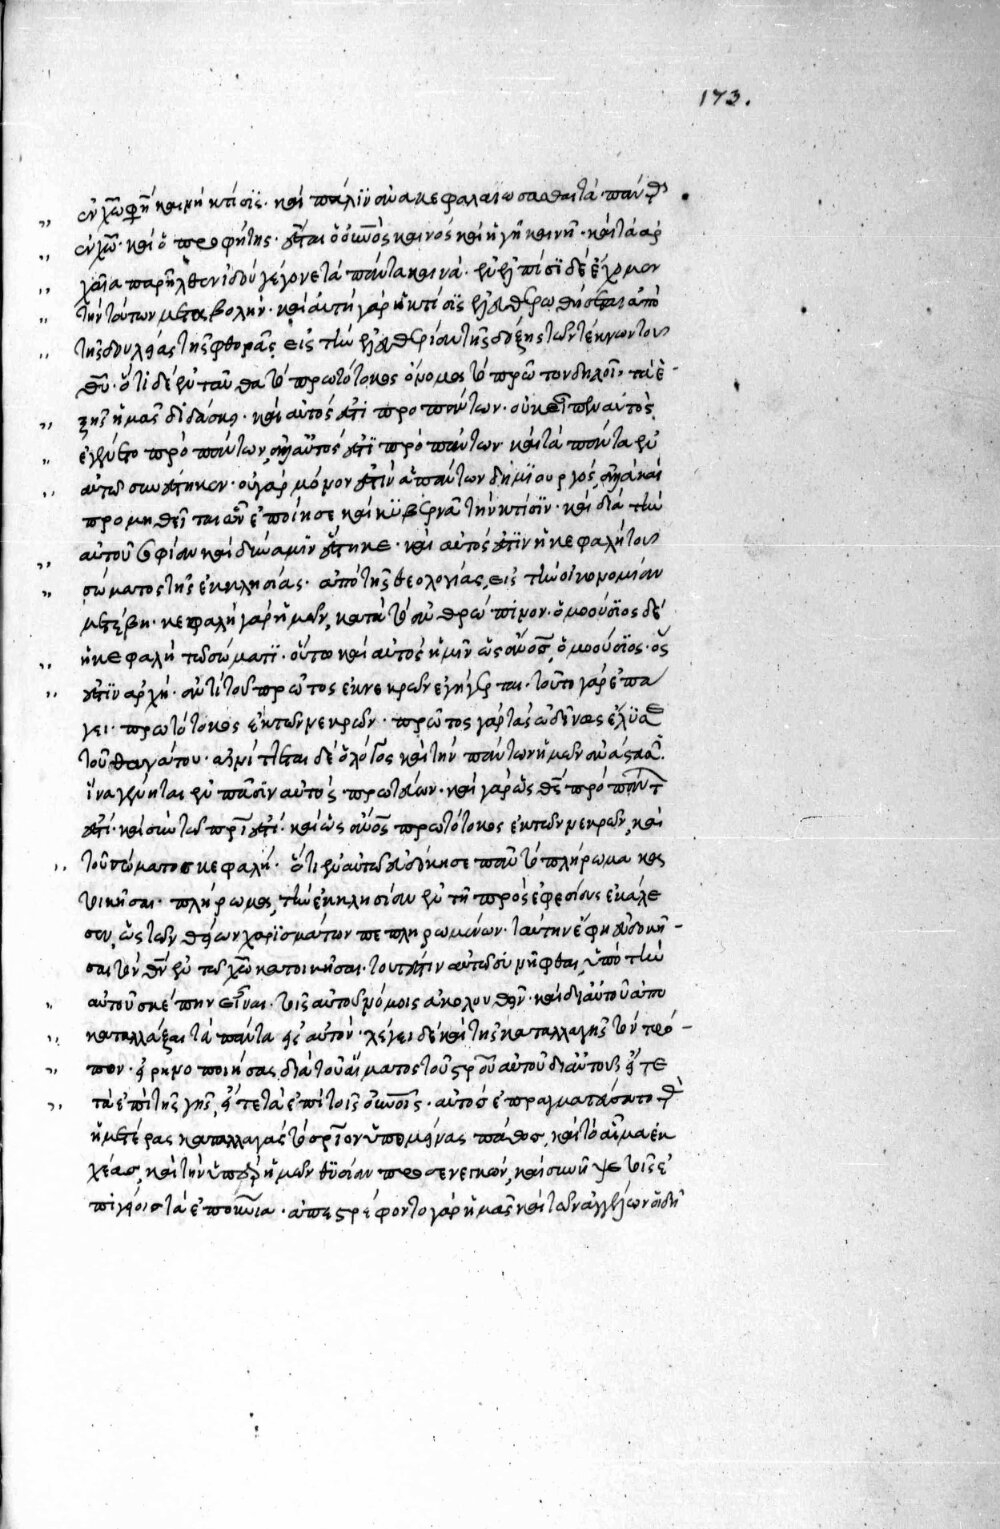 173.
ἐν χῶ φη καινὴ κτίσις· καὶ πάλιν ἀνακεφαλαιώσασθαι τὰ πάντα
ἐν χῶ· καὶ ὁ προφήτης· ἔσται ὁ οὐνὸς καινὸς καὶ ἡ γῆ καινή· καὶ τὰ ἀρ
χαῖα παρῆλθεν ἰδοὺ γέγονε τὰ πάντα καινά· ἐν ἐλπίσι δὲ ἔχομεν
τὴν τούτων μεταβολήν· καὶ αὐτὴ γὰρ ἡ κτίσις ἐλευθερωθήσεται ἀπὸ
τῆς δουλείας τῆς φθορᾶς εἰς τὴν ἐλευθερίαν τῆς δόξης τῶν τέκνων τοῦ
θῦ· ὅτι δὲ ἐνταῦθα τὸ πρωτότοκος ὄνομα τὸ πρῶτον δηλοῖ, τὰ ἑ
ξῆς ἡμᾶς διδάσκει· καὶ αὐτός ἐστι πρὸ πάντων· οὐκ εἶπεν αὐτὸς
ἐγένετο πρὸ πάντων, ἀλλ' αὐτός ἐστι πρὸ πάντων καὶ τὰ πάντα ἐν
αὐτῶ συνέστηκεν· οὐ γὰρ μόνον ἐστὶν ἁπάντων δημιουργός, ἀλλὰ καὶ
προμηθεῖται ὧν ἐποίησε καὶ κυβερνᾶ τὴν κτίσιν· καὶ διὰ τὴν
αὐτοῦ σοφίαν καὶ δύναμιν ἕστηκε· καὶ αὐτός ἐστιν ἡ κεφαλὴ τοῦ
σώματος τῆς ἐκκλησίας· ἀπὸ τῆς θεολογίας, εἰς τὴν οἰκονομίαν
μετέβη· κεφαλὴ γὰρ ἡμῶν, κατὰ τὸ ἀνθρώπινον· ὁμοούσιος δὲ
ἡ κεφαλὴ τῶ σώματι· οὕτω καὶ αὐτὸς ἡμῖν ὡς ἄνος, ὁμοούσιος· ὅς
ἐστιν ἀρχή· ἀντὶ τοῦ πρῶτος ἐκ νεκρῶν ἐγήγερται· τοῦτο γὰρ ἐπά
γει· πρωτότοκος ἐκ τῶν νεκρῶν· πρῶτος γὰρ τὰς ὠδῖνας ἔλυσε
τοῦ θανάτου· αἰνίττεται δὲ ὁ λόγος καὶ τὴν πάντων ἡμῶν ἀνάστασιν·
ἵνα γένηται ἐν πᾶσιν αὐτὸς πρωτεύων· καὶ γὰρ ὡς θς πρὸ πάντων
ἐστί· καὶ σὺν τῶ πρί ἐστί· καὶ ὡς ἄνος πρωτότοκος ἐκ τῶν νεκρῶν, καὶ
τοῦ σώματος κεφαλή· ὅτι ἐν αὐτῶ εὐδόκησε πᾶν τὸ πλήρωμα κα
τοικῆσαι· πλήρωμα, τὴν ἐκκλησίαν ἐν τῆ πρὸς ἐφεσίους ἐκάλε
σεν, ὡς τῶν θείων χαρισμάτων πεπληρωμένων· ταύτην ἔφη εὐδοκῆ
σαι τὸν θν ἐν τῶ χῶ κατοικῆσαι· τουτέστιν αὐτῶ συνῆφθαι, ὑπὸ τὴν
αὐτοῦ σκέπην εἶναι· τοῖς αὐτοῦ νόμοις ἀκολουθεῖν· καὶ δι' αὐτοῦ ἀπο
καταλλάξαι τὰ πάντα εἰς αὐτόν· λέγει δὲ καὶ τῆς καταλλαγῆς τὸν τρό
πον· εἰρηνοποιήσας διὰ τοῦ αἵματος τοῦ σροῦ αὐτοῦ δι' αὐτοῦ, εἴτε
τὰ ἐπὶ τῆς γῆς, εἴτε τὰ ἐπὶ τοῖς οὐνοῖς· αὐτὸς ἐπραγματεύσατο τὰς
ἡμετέρας καταλλαγάς τὸ σρίον ὑπομείνας πάθος, καὶ τὸ αἷμα ἐκ
χέας, καὶ τὴν ὑπὲρ ἡμῶν θυσίαν προσενεγκών, καὶ συνῆψε τοῖς ἐ
πιγείοις τὰ ἐπουράνια· ἀπεστρέφοντο γὰρ ἡμᾶς καὶ τῶν ἀγγέλων οἱ δῆ